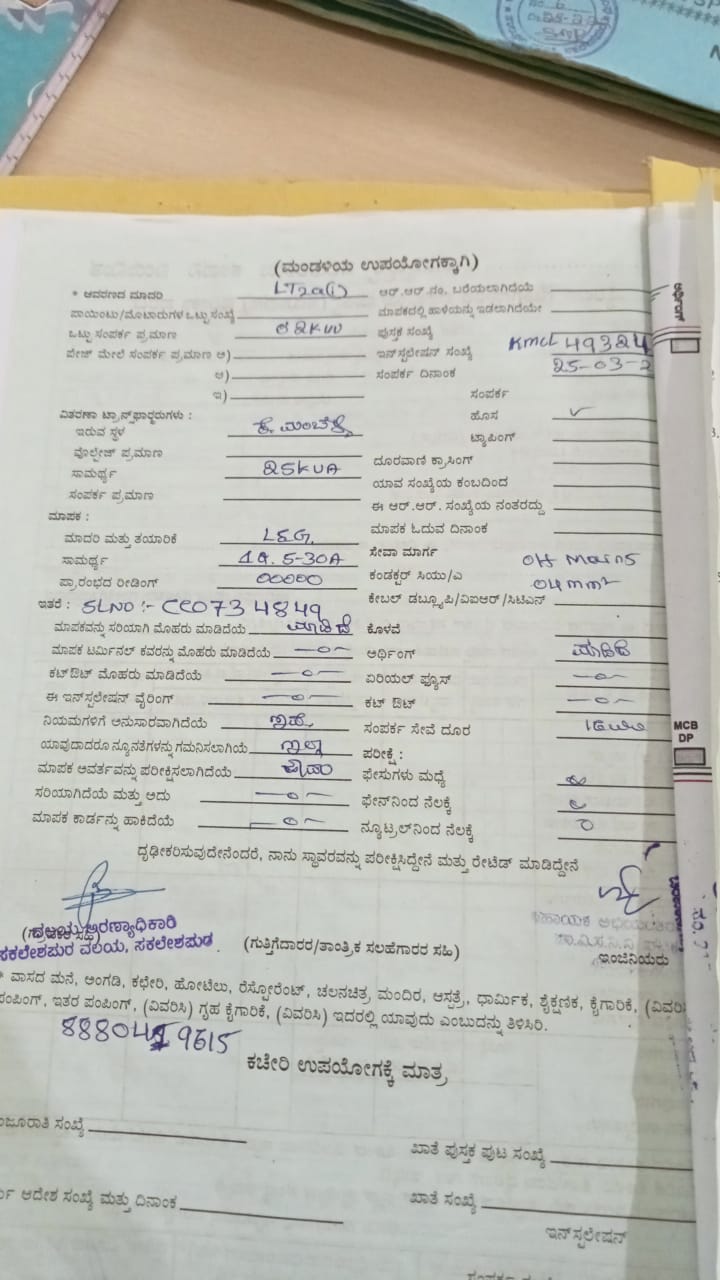 (ಮಂಡಳಿಯ ಉಪಯೋಗಕ್ಕಾಗಿ)
* ಆವರಣದ ಮಾದರಿ LT2a(i) ಆರ್.ಆರ್.ನಂ. ಬರೆಯಲಾಗಿದೆಯೆ
ಪಾಯಿಂಟು/ಮೋಟಾರುಗಳ ಒಟ್ಟು ಸಂಖ್ಯೆ ಮಾಪಕದಲ್ಲಿ ಹಾಳೆಯನ್ನು ಇಡಲಾಗಿದೆಯೇ
ಒಟ್ಟು ಸಂಪರ್ಕ ಪ್ರಮಾಣ 02KW ಪುಸ್ತಕ ಸಂಖ್ಯೆ
ಪೇಜ್ ಮೇಲೆ ಸಂಪರ್ಕ ಪ್ರಮಾಣ ಅ) ಇನ್‌ಸ್ಟಲೇಷನ್ ಸಂಖ್ಯೆ KMCL 49324
ಆ) ಸಂಪರ್ಕ ದಿನಾಂಕ 25-03-2
ಇ) ಸಂಪರ್ಕ
ವಿತರಣಾ ಟ್ರಾನ್ಸ್‌ಫಾರ್ಮರುಗಳು : ಹೊಸ ✓
ಇರುವ ಸ್ಥಳ ಟ್ಯಾಪಿಂಗ್
ವೊಲ್ಟೇಜ್ ಪ್ರಮಾಣ ದೂರವಾಣಿ ಕ್ರಾಸಿಂಗ್
ಸಾಮರ್ಥ್ಯ 25KVA ಯಾವ ಸಂಖ್ಯೆಯ ಕಂಬದಿಂದ
ಸಂಪರ್ಕ ಪ್ರಮಾಣ ಈ ಆರ್.ಆರ್. ಸಂಖ್ಯೆಯ ನಂತರದ್ದು
ಮಾಪಕ : ಮಾಪಕ ಓದುವ ದಿನಾಂಕ
ಮಾದರಿ ಮತ್ತು ತಯಾರಿಕೆ L&G. ಸೇವಾ ಮಾರ್ಗ
ಸಾಮರ್ಥ್ಯ 1Q. 5-30A ಕಂಡಕ್ಟರ್ ಸಿಯು/ಎ OH Mains
ಪ್ರಾರಂಭದ ರೀಡಿಂಗ್ 00000 ಕೇಬಲ್ ಡಬ್ಲ್ಯೂಪಿ/ವಿಐಆರ್/ಸಿಟಿಎನ್ 04mm²
ಇತರೆ : SLNO :- CC0734849
ಮಾಪಕವನ್ನು ಸರಿಯಾಗಿ ಮೊಹರು ಮಾಡಿದೆಯೆ ಮಾಡಿದೆ ಕೊಳವೆ
ಮಾಪಕ ಟರ್ಮಿನಲ್ ಕವರನ್ನು ಮೊಹರು ಮಾಡಿದೆಯೆ —o— ಅರ್ಥಿಂಗ್ ಮಾಡಿದೆ
ಕಟ್‌ಔಟ್ ಮೊಹರು ಮಾಡಿದೆಯೆ —o— ಏರಿಯಲ್ ಫ್ಯೂಸ್ —o—
ಈ ಇನ್‌ಸ್ಟಲೇಷನ್ ವೈರಿಂಗ್ —o— ಕಟ್ ಔಟ್ —o—
ನಿಯಮಗಳಿಗೆ ಅನುಸಾರವಾಗಿದೆಯೆ ಇದೆ ಸಂಪರ್ಕ ಸೇವೆ ದೂರ
ಯಾವುದಾದರೂ ನ್ಯೂನತೆಗಳನ್ನು ಗಮನಿಸಲಾಗಿಯೆ ಇಲ್ಲ ಪರೀಕ್ಷೆ :
ಮಾಪಕ ಆವರ್ತವನ್ನು ಪರೀಕ್ಷಿಸಲಾಗಿದೆಯೆ ಫೇಸುಗಳು ಮಧ್ಯೆ
ಸರಿಯಾಗಿದೆಯೆ ಮತ್ತು ಅದು —o— ಫೇಸ್‌ನಿಂದ ನೆಲಕ್ಕೆ
ಮಾಪಕ ಕಾರ್ಡನ್ನು ಹಾಕಿದೆಯೆ —o— ನ್ಯೂಟ್ರಲ್‌ನಿಂದ ನೆಲಕ್ಕೆ
MCB
DP
ದೃಢೀಕರಿಸುವುದೇನೆಂದರೆ, ನಾನು ಸ್ಥಾವರವನ್ನು ಪರೀಕ್ಷಿಸಿದ್ದೇನೆ ಮತ್ತು ರೇಟೆಡ್ ಮಾಡಿದ್ದೇನೆ
ವಲಯ ಅರಣ್ಯಾಧಿಕಾರಿ
ಸಕಲೇಶಪುರ ವಲಯ, ಸಕಲೇಶಪುರ (ಗುತ್ತಿಗೆದಾರರ/ತಾಂತ್ರಿಕ ಸಲಹೆಗಾರರ ಸಹಿ) ಇಂಜಿನಿಯರು
* ವಾಸದ ಮನೆ, ಅಂಗಡಿ, ಕಛೇರಿ, ಹೋಟೆಲು, ರೆಸ್ಟೋರೆಂಟ್, ಚಲನಚಿತ್ರ ಮಂದಿರ, ಆಸ್ಪತ್ರೆ, ಧಾರ್ಮಿಕ, ಶೈಕ್ಷಣಿಕ, ಕೈಗಾರಿಕೆ, (ವಿವರಿ
ಪಂಪಿಂಗ್, ಇತರ ಪಂಪಿಂಗ್, (ವಿವರಿಸಿ) ಗೃಹ ಕೈಗಾರಿಕೆ, (ವಿವರಿಸಿ) ಇದರಲ್ಲಿ ಯಾವುದು ಎಂಬುದನ್ನು ತಿಳಿಸಿರಿ.
ಕಚೇರಿ ಉಪಯೋಗಕ್ಕೆ ಮಾತ್ರ
ಂಜೂರಾತಿ ಸಂಖ್ಯೆ
ಖಾತೆ ಪುಸ್ತಕ ಪುಟ ಸಂಖ್ಯೆ
ಆದೇಶ ಸಂಖ್ಯೆ ಮತ್ತು ದಿನಾಂಕ ಖಾತೆ ಸಂಖ್ಯೆ
ಇನ್‌ಸ್ಟಲೇಷನ್